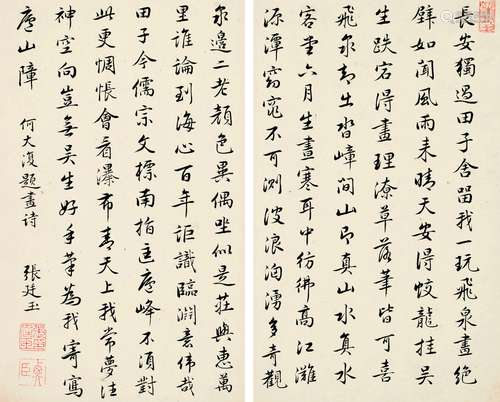 長安獨過田子舍留我一玩飛泉畫絕
壁如聞風雨來晴天安得蛟龍挂吳
生跌宕得畫理潦草落筆皆可喜
飛泉却出沓嶂間山即真山水真水
客堂六月生晝寒耳中彷彿高江灘
源潭窈窕不可測波浪洶湧多奇觀
泉邊二老顏色異偶坐似是莊與惠萬
里誰論到海心百年詎識臨淵意偉哉
田子今儒宗文標南指匡廬峰不須對
此更惆悵會看瀑布青天上我常夢往
神空向豈無吳生好手筆為我寄寫
廬山障
何大復題畫詩
張廷玉